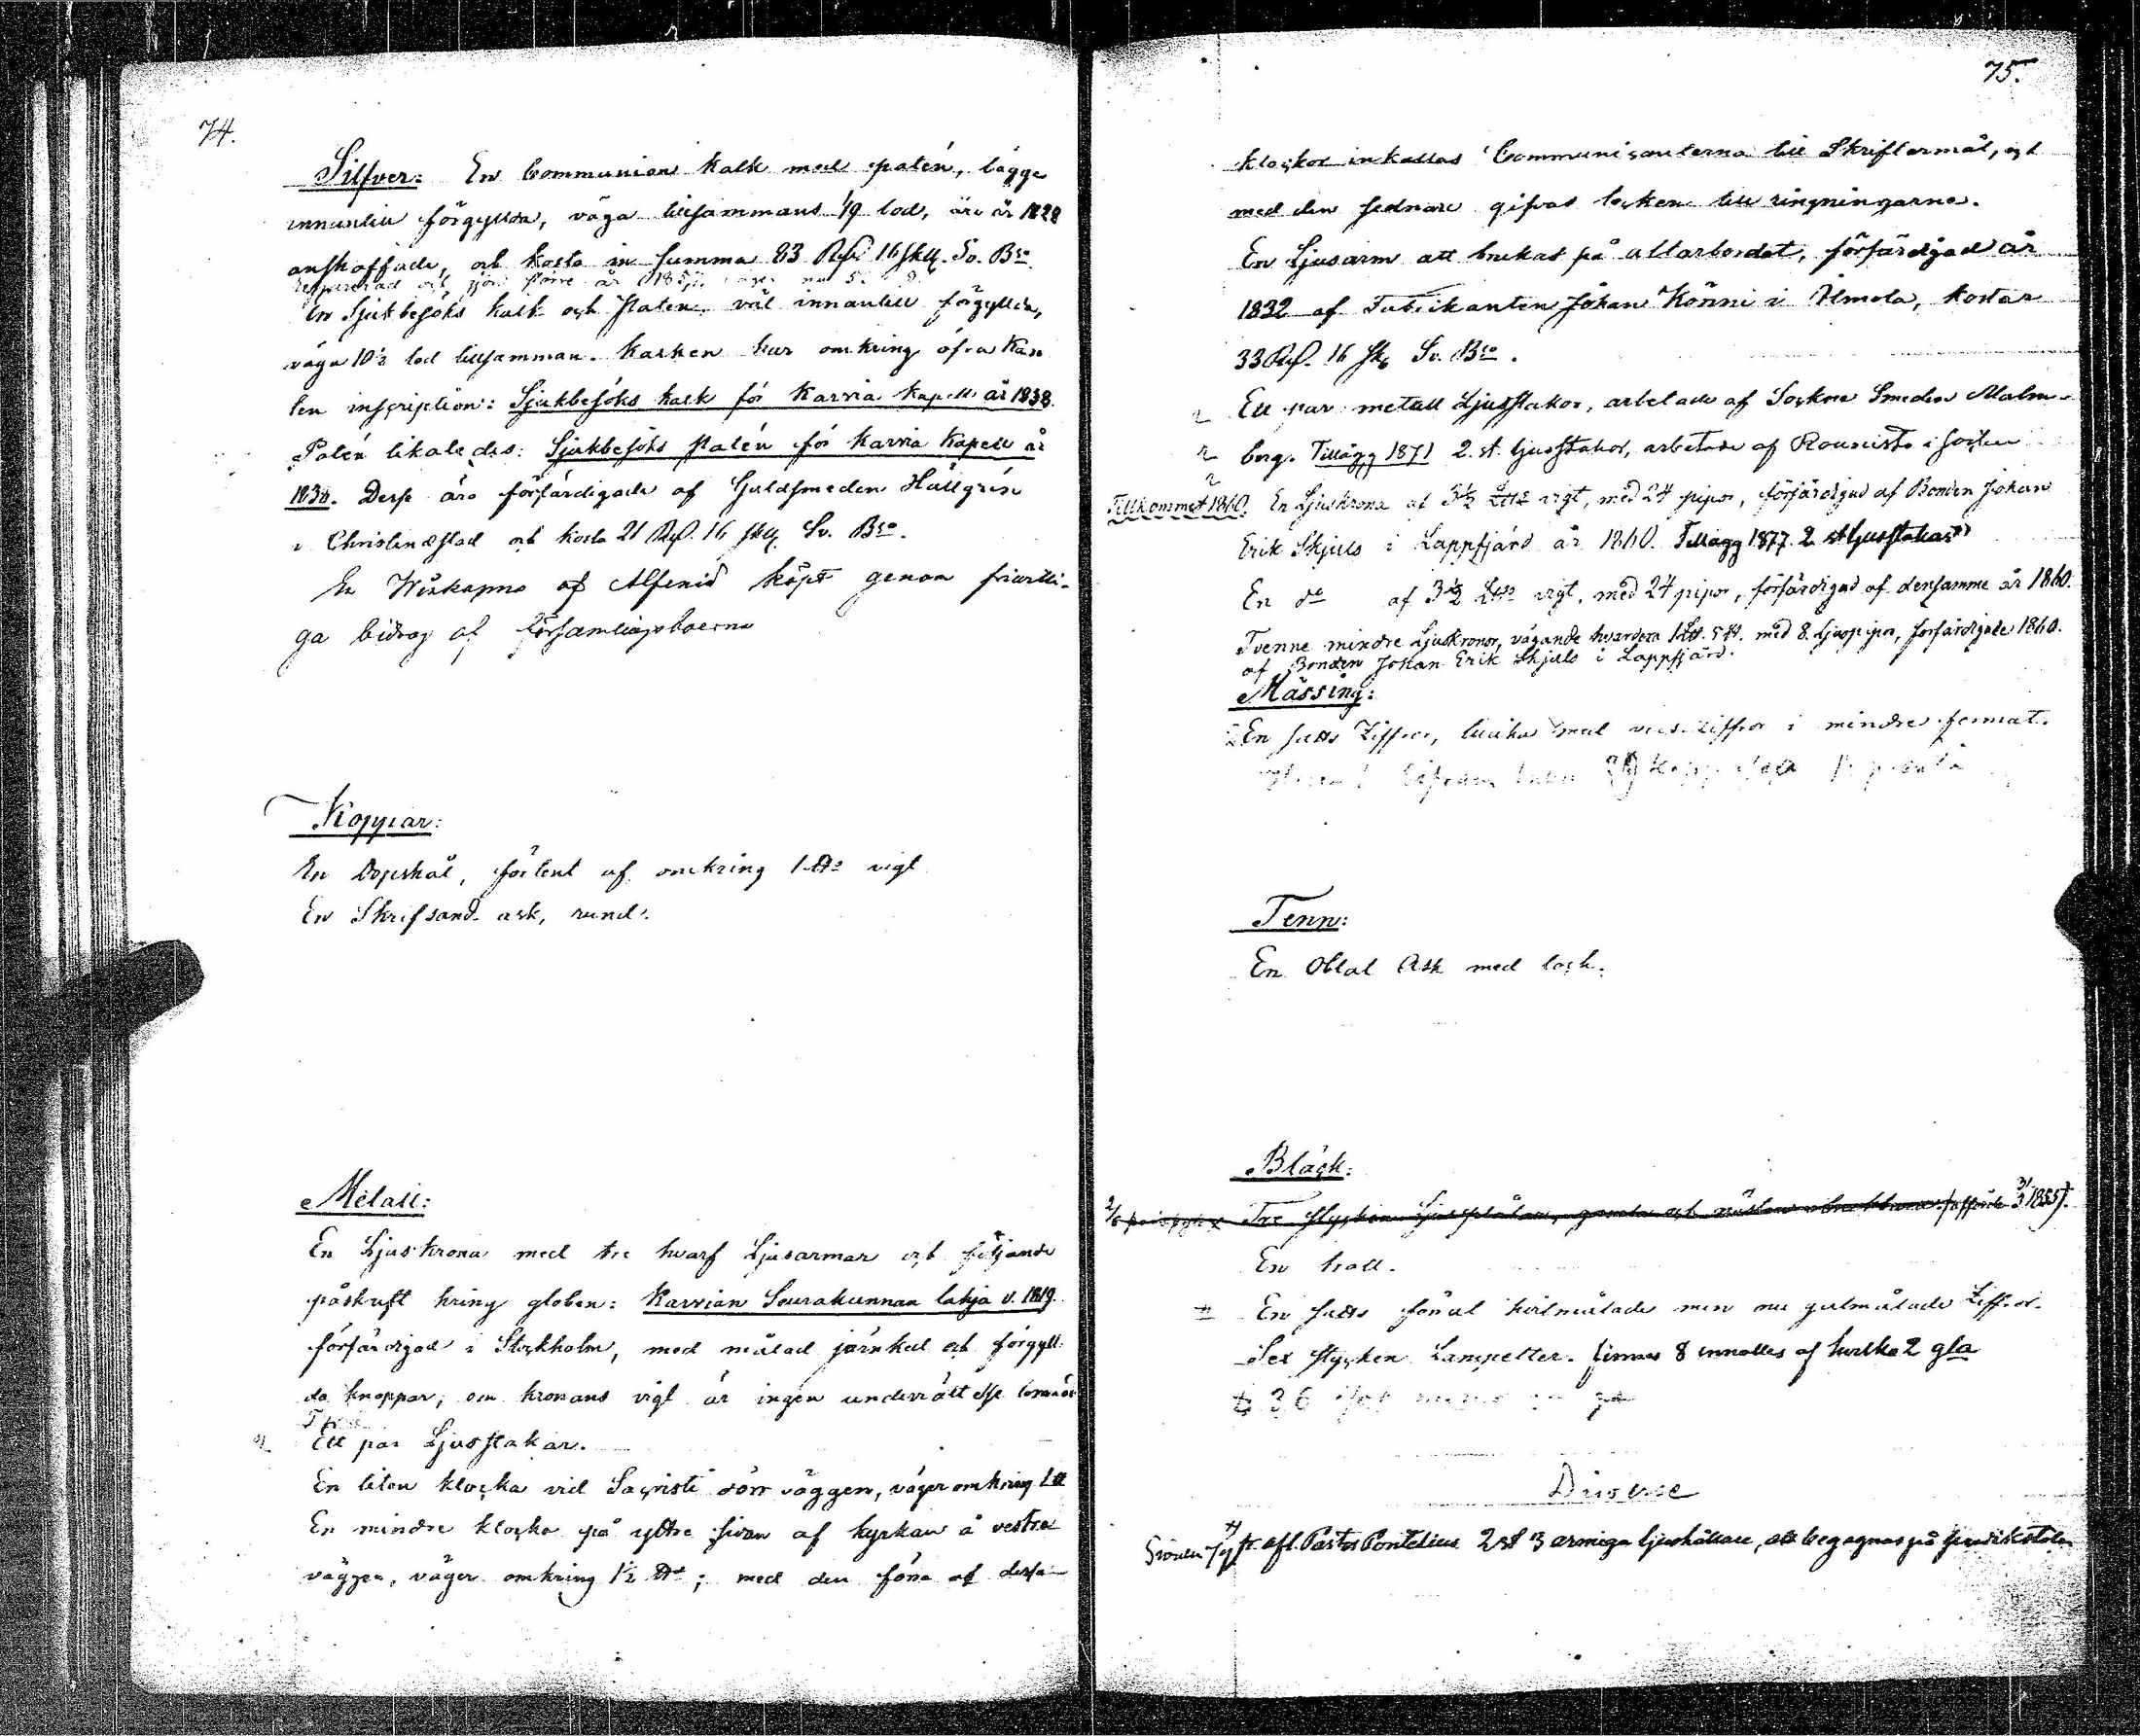 74.
Silfver: En Communion Kalk med patén, bägge
innantill förgyllda, väga tillsammans 19 lod, äro år 1828
anskaffade, och kosta in summa 83 R. 16 sk. Sv. Bco.
Reparerad och gjord större år
En Sjukbesöks kalk och Paten, väl innantill förgyllda,
väga 10½ lod tillsamman. Kalken har omkring öfra Kan
ten inscription: Sjukbesöks kalk för Karvia Kapell år 1838.
Patén likaledes: Sjukbesöks Patén för Karvia Kapell år
1838. Desse äro förfärdigade af Guldsmeden Hällgrén
i Christinæstad och kosta 21 R. 16 sk. Sv. Bco.
En Winkanna af Alfenid köpt genom frivilli-
ga bidrag af församlingsboerna
Koppar:
En Dopskål, förtent af omkring 1 vigt
En Skrifsand-ask, rund.
Metall:
En Ljuskrona med tre hvarf Ljusarmar och följande
påskrift kring globen: Karvian Seurakunnan lahja v. 1819.
förfärdigad i Stockholm, med målad järnked och förgyll-
da knoppar; om kronans vigt är ingen underrättelse
Ett par Ljusstakar.
En liten klocka vid Sacristi dörr väggen, väger omkring
En mindre klocka på yttre sidan af kyrkan å vestra
väggen, väger omkring 1½; med den förra af dessa
75.
klockor inkallas Communicanterna till Skriftermål, och
med den sednare gifves tecken till ringningarne.
En Ljusarm att brukas på altarbordet, förfärdigad år
1832 af Fabrikanten Johan Könni i Ilmola, kostar
33 R. 16 sk. Sv. Bco.
Ett par metall Ljusstakar, arbetade af Sockne Smeden Malm-
berg. Tillägg 1871 2. st. ljusstakar, arbetade af i socken
Tillkommet 1860. En Ljuskrona af 3½ vigt, med 24 pipor, förfärdigad af Bonden Johan
Erik Skjäls i Lappfjärd år 1860. Tillägg 1877 2 st ljusstakar
En do af 3½ vigt, med 24 pipor, förfärdigad af densamme år 1860.
Tvenne mindre Ljuskronor, vägande hvardera med 8 Ljuspipor, förfärdigade 1860.
af Bonden Johan Erik Skjäls i Lappfjärd.
Mässing:
En sats Ziffror, lika med vers-ziffror i mindre format.
Tenn:
En Oblat Ask med lock.
Bläck:
Tre stycken Ljusplåtar, gamla och nästan obrukbara
En tratt.
En sats förut hvitmålade men nu gulmålade Ziffror.
Sex stycken Lampetter. finnas 8 innalles af hvilka 2 gla
Diverse
afl. Pastor Pontelius 2 st 3 armiga ljushållare, att begagnas på predikstolen